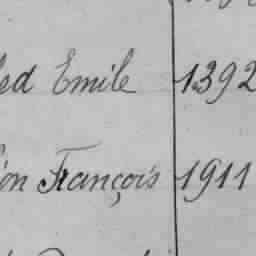 Emile 1392
François 1911